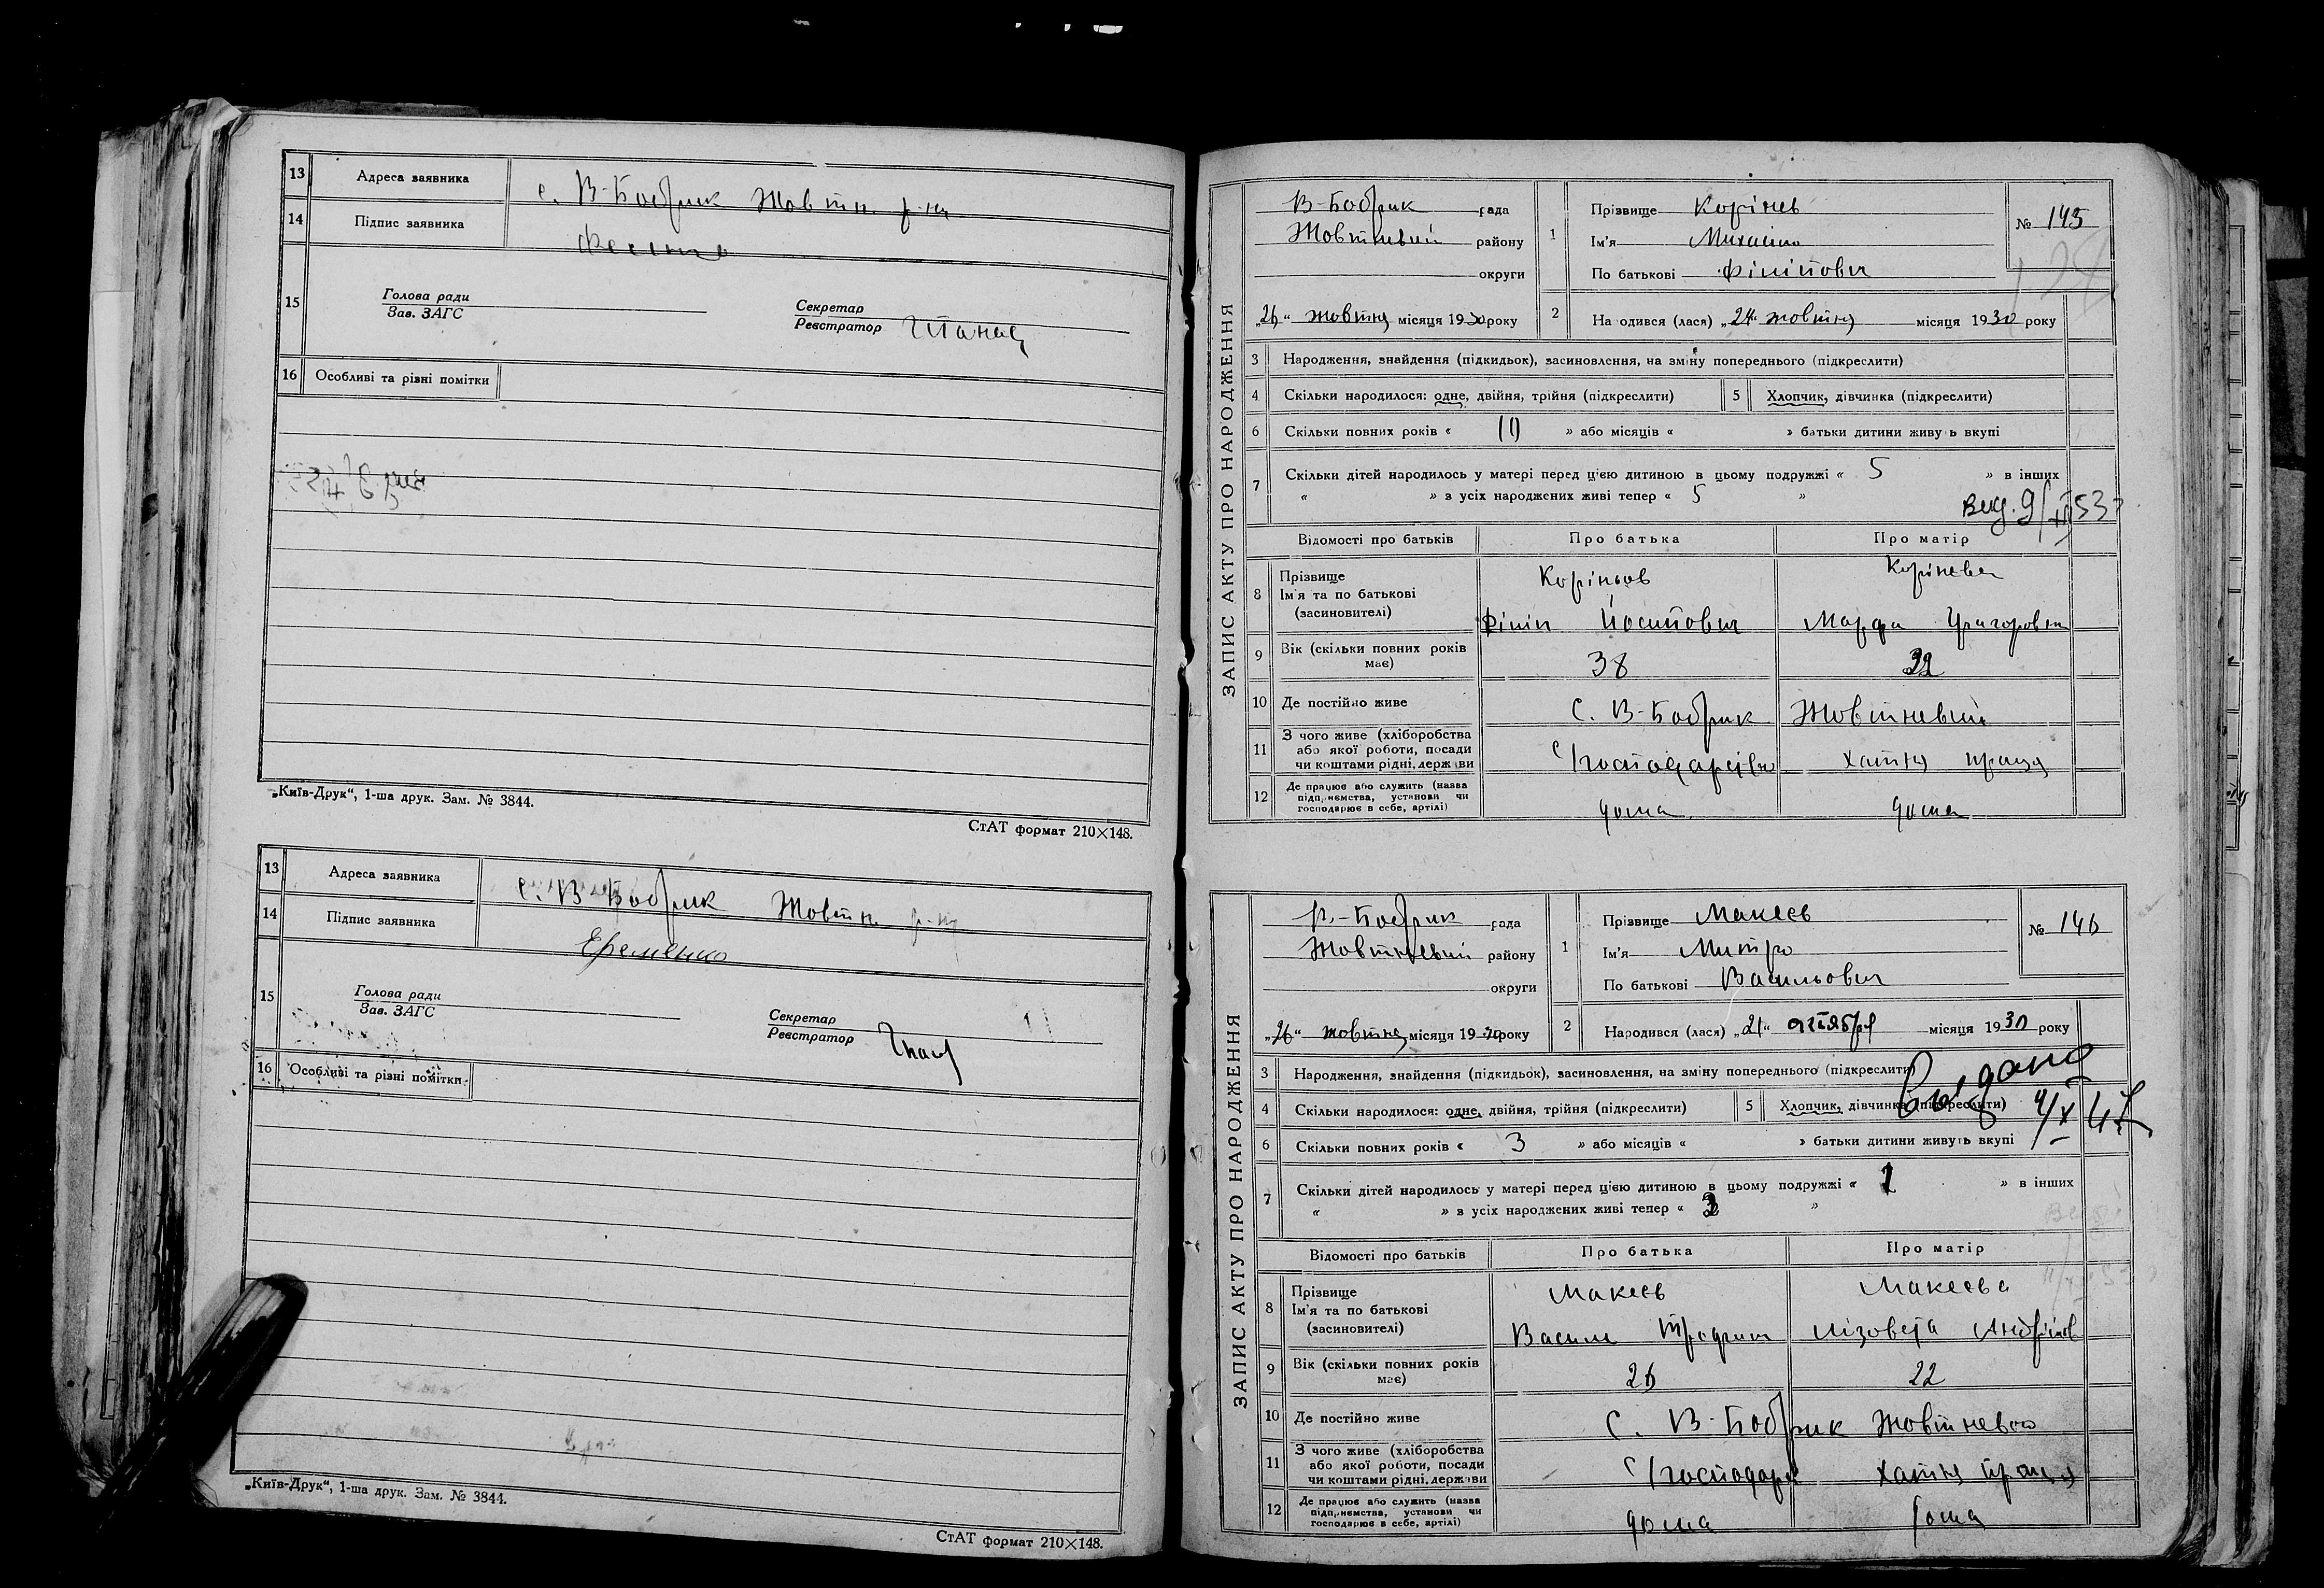 13 Адреса заявника с. В-Бобрик Жовтн. р-ну
14 Підпис заявника
15 Голова ради
Зав. ЗАГС
Секретар
Реєстратор
16 Особливі та різні помітки
„Київ-Друк“, 1-ша друк. Зам. № 3844.
СтАТ формат 210×148.
13 Адреса заявника с. В-Бобрик Жовтн. р-ну
14 Підпис заявника Єременко
15 Голова ради
Зав. ЗАГС
Секретар
Реєстратор
16 Особливі та різні помітки
„Київ-Друк“, 1-ша друк. Зам. № 3844.
СтАТ формат 210×148.
ЗАПИС АКТУ ПРО НАРОДЖЕННЯ
В-Бобрик рада
Жовтневий району
округи
„26“ жовтня місяця 1930 року
1 Прізвище Корінєв
Ім'я Михайло
По батькові Філіпович
№ 145
2 На одився (лася) „24“ жовтня місяця 1930 року
3 Народження, знайдення (підкидьок), засиновлення, на зміну попереднього (підкреслити)
4 Скільки народилося: одне, двійня, трійня (підкреслити) 5 Хлопчик, дівчинка (підкреслити)
6 Скільки повних років « 10 » або місяців « » батьки дитини живу ь вкупі
7 Скільки дітей народилось у матері перед цією дитиною в цьому подружжі « 5 » в інших
« » з усіх народжених живі тепер « 5 »
Відомості про батьків Про батька Про матір
8 Прізвище Коріньов Корінева
Ім'я та по батькові
(засиновителі) Філіп Йосипович Марфа Григоровна
9 Вік (скільки повних років має) 38 32
10 Де постійно живе С. В-Бобрик Жовтневий
11 З чого живе (хліборобства
або якої роботи, посади
чи коштами рідні, держави С/господарство хатня праця
12 Де працює або служить (назва
підприємства, установи чи
господарює в себе, артілі) дома дома
ЗАПИС АКТУ ПРО НАРОДЖЕННЯ
В-Бобрик рада
Жовтневий району
округи
„26“ жовтня місяця 1930 року
1 Прізвище Макеєв
Ім'я Митро
По батькові Васильович
№ 146
2 Народився (лася) „21“ октября місяця 1930 року
3 Народження, знайдення (підкидьок), засиновлення, на зміну попереднього (підкреслити)
Выдано
4 Скільки народилося: одне, двійня, трійня (підкреслити) 5 Хлопчик, дівчинка (підкреслити)
6 Скільки повних років « 3 » або місяців « » батьки дитини живуть вкупі
7 Скільки дітей народилось у матері перед цією дитиною в цьому подружжі « 1 » в інших
« » з усіх народжених живі тепер « »
Відомості про батьків Про батька Про матір
8 Прізвище Макеєв Макеєва
Ім'я та по батькові
(засиновителі) Василь Лізовета
9 Вік (скільки повних років має) 26 22
10 Де постійно живе С. В-Бобрик Жовтневого
11 З чого живе (хліборобства
або якої роботи, посади
чи коштами рідні, держави С/господар хатня праця
12 Де працює або служить (назва
підприємства, установи чи
господарює в себе, артілі) дома дома